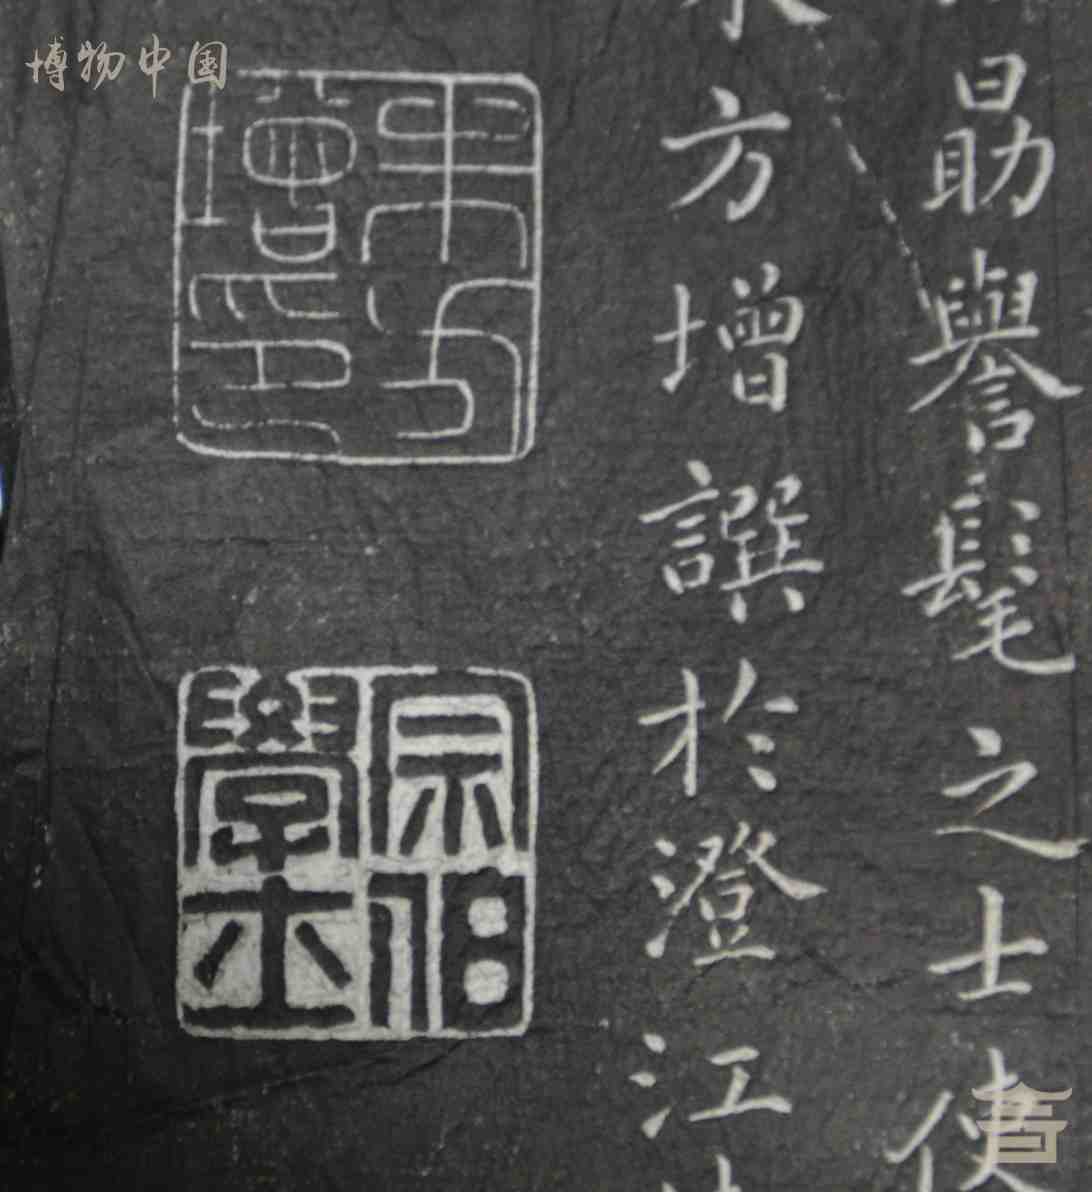 勗譽髦之士使
朱方增譔於澄江
朱方增印
宗伯學士
博物中国